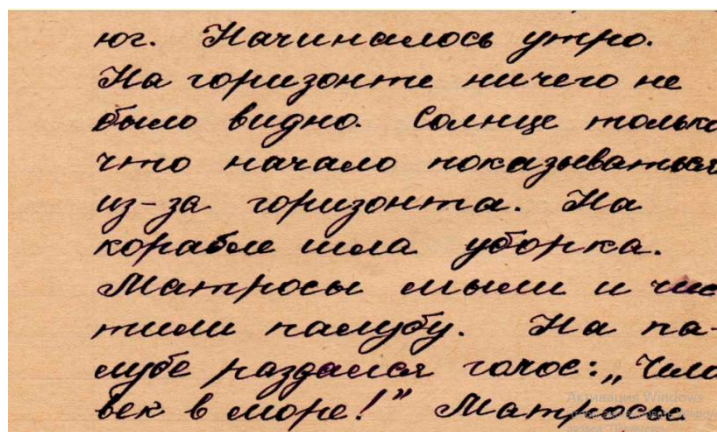 юг. Начиналось утро.
На горизонте ничего не
было видно. Солнце только
что начало показываться
из-за горизонта. На
корабле шла уборка.
Матросы мыли и чис
тили палубу. На па-
лубе раздался голос: „Чело
век в море!" Матросы
Активация Windows